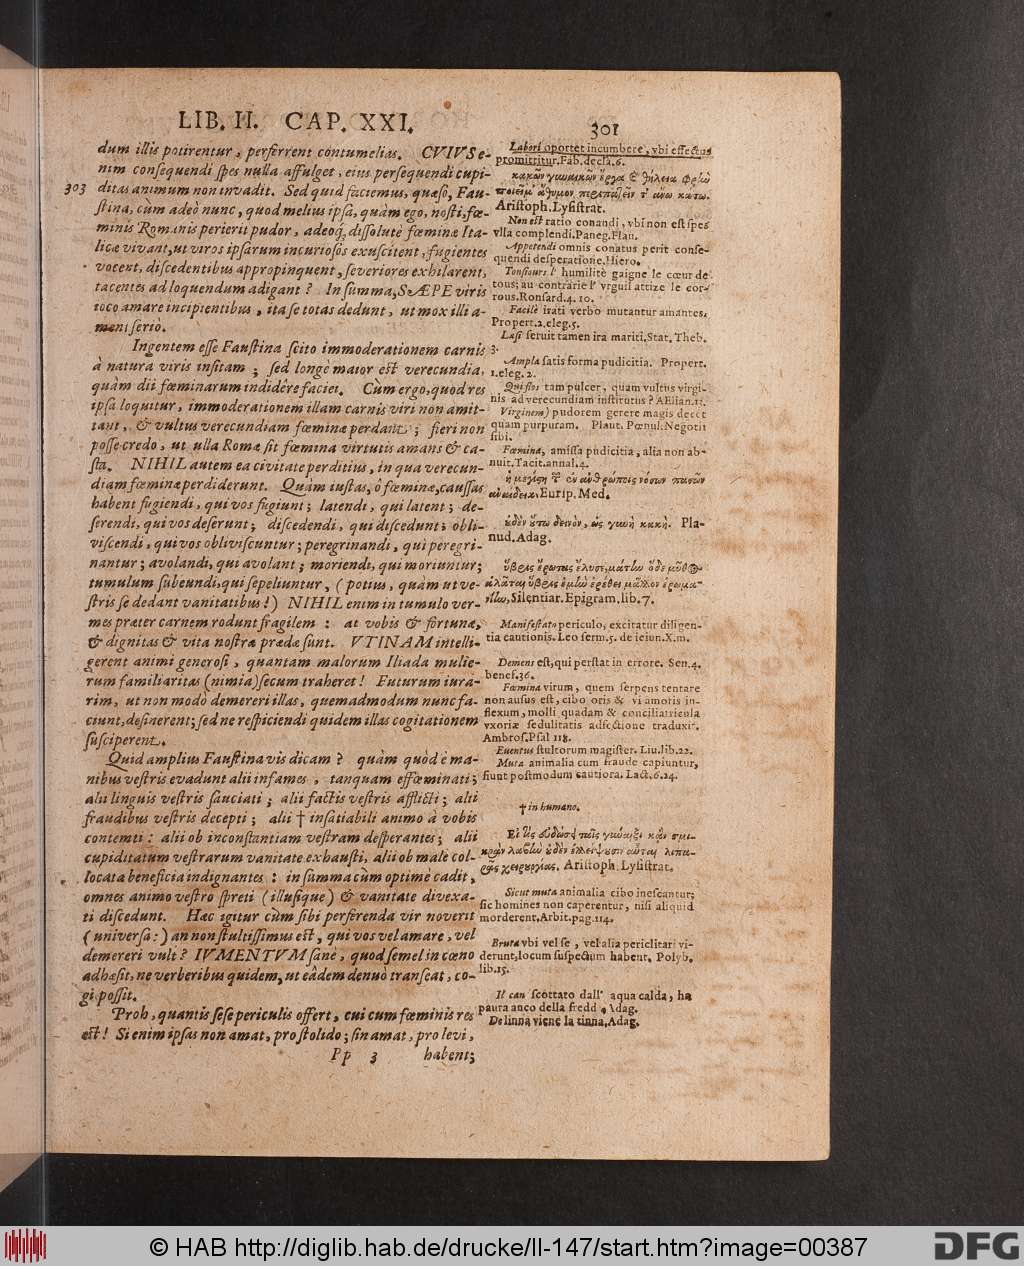 LIB. II. CAP. XXI. 301
dum illis potirentur, perferrent contumelias. CVIVS e-
nim consequendi spes nulla affulget, eius persequendi cupi-
303 ditas animum non invadit. Sed quid faciemus, quæso, Fau-
stina, cùm adeò nunc, quod melius ipsa, quàm ego, nosti, fœ-
minis Romanis perierit pudor, adeoq; dissolutè fœminæ Ita-
licæ vivant, ut viros ipsarum incuriosos exuscitent, fugientes
vocent, discedentibus appropinquent, severiores exhilarent,
tacentes ad loquendum adigant? In summa, SÆPE viris
ioco amare incipientibus, ita se totas dedunt, ut mox illi a-
ment seriò.
Ingentem esse Faustina scito immoderationem carnis
à natura viris insitam; sed longè maior est verecundia,
quàm dii fœminarum indidêre faciei. Cùm ergo, quod res
ipsa loquitur, immoderationem illam carnis viri non amit-
tant, & vultus verecundiam fœminæ perdant; fieri non
posse credo, ut ulla Romæ sit fœmina virtutis amans & ca-
sta. NIHIL autem ea civitate perditius, in qua verecun-
diam fœminæ perdiderunt. Quàm iustas, ô fœminæ, caussas
habent fugiendi, qui vos fugiunt; latendi, qui latent; de-
serendi, qui vos deserunt; discedendi, qui discedunt; obli-
viscendi, qui vos obliviscuntur; peregrinandi, qui peregri-
nantur; avolandi, qui avolant; moriendi, qui moriuntur;
tumulum subeundi, qui sepeliuntur, (potius, quàm ut ve-
stris se dedant vanitatibus!) NIHIL enim in tumulo ver-
mes præter carnem rodunt fragilem: at vobis & fortunæ,
& dignitas & vita nostra prædæ sunt. VTINAM intelli-
gerent animi generosi, quantam malorum Iliada mulie-
rum familiaritas (nimia) secum traheret! Futurum iura-
rim, ut non modò demereri illas, quemadmodum nunc fa-
ciunt, desinerent; sed ne respiciendi quidem illas cogitationem
susciperent.
Quid amplius Faustina vis dicam? quàm quòd è ma-
nibus vestris evadunt alii infames, tanquam effœminati;
alii linguis vestris sauciati; alii factis vestris afflicti; alii
fraudibus vestris decepti; alii † insatiabili animo à vobis
contemti: alii ob inconstantiam vestram desperantes; alii
cupiditatum vestrarum vanitate exhausti, alii ob malè col-
locata beneficia indignantes: in summa cùm optimè cadit,
omnes animo vestro spreti (illusique) & vanitate divexa-
ti discedunt. Hæc igitur cùm sibi perferenda vir noverit
(universa:) an non stultissimus est, qui vos vel amare, vel
demereri vult? IVMENTVM sanè, quod semel in cœno
adhæsit, ne verberibus quidem, ut eâdem denuò transeat, co-
gi possit.
Proh, quantis sese periculis offert, cui cum fœminis res
est! Si enim ipsas non amat, pro stolido; sin amat, pro levi,
Pp 3 habent;
Labori oportet incumbere, vbi effectus
promittitur. Fab. decla. 6.
Aristoph. Lysistrat.
Non est ratio conandi, vbi non est spes
vlla complendi. Paneg. Flau.
Appetendi omnis conatus perit conse-
quendi desperatione. Hiero.
Tousiours l' humilitè gaigne le cœur de
tous; au contrarie l' vrguil attize le cor-
rous. Ronsard. 4. 10.
Facilè irati verbo mutantur amantes.
Propert. 2. eleg. 5.
Læsi seruit tamen ira mariti, Stat. Theb.
3.
Ampla satis forma pudicitia. Propert.
1. eleg. 2.
Qui flos tam pulcer, quam vultus virgi-
nis ad verecundiam institutus? AElian. 12.
Virginem) pudorem gerere magis decet
quam purpuram. Plaut. Pœnul. Negotii
sibi.
Fœmina, amissa pudicitia, alia non ab-
nuit. Tacit. annal. 4.
ἡ μεγίστη τῶν ἐν ἀνθρώποις νόσων πασῶν
ἀναίδεια, Eurip. Med.
οὐδὲν οὕτω δεινὸν, ὡς γυνὴ κακή. Pla-
nud. Adag.
Silentiar. Epigram. lib. 7.
Manifestato periculo, excitatur diligen-
tia cautionis. Leo serm. 5. de ieiun. X. m.
Demens est, qui perstat in errore. Sen. 4.
benef. 36.
Fœmina virum, quem serpens tentare
non ausus est, cibo oris & vi amoris in-
flexum, molli quadam & conciliatricula
vxoriæ sedulitatis adfectione traduxit.
Ambros. Psal 118.
Euentus stultorum magister. Liu. lib. 22.
Muta animalia cum fraude capiuntur,
fiunt postmodum cautiora. Lact. 6. 24.
† inhumano.
Aristoph. Lysistrat.
Sicut muta animalia cibo inescantur;
sic homines non caperentur, nisi aliquid
morderent. Arbit. pag. 114.
Bruta vbi vel se, vel alia periclitari vi-
derunt, locum suspectum habent. Polyb.
lib. 15.
Il can scottato dall' aqua calda, ha
paura anco della fredd. Adag.
De linna viene la tinna, Adag.
© HAB http://diglib.hab.de/drucke/ll-147/start.htm?image=00387
DFG